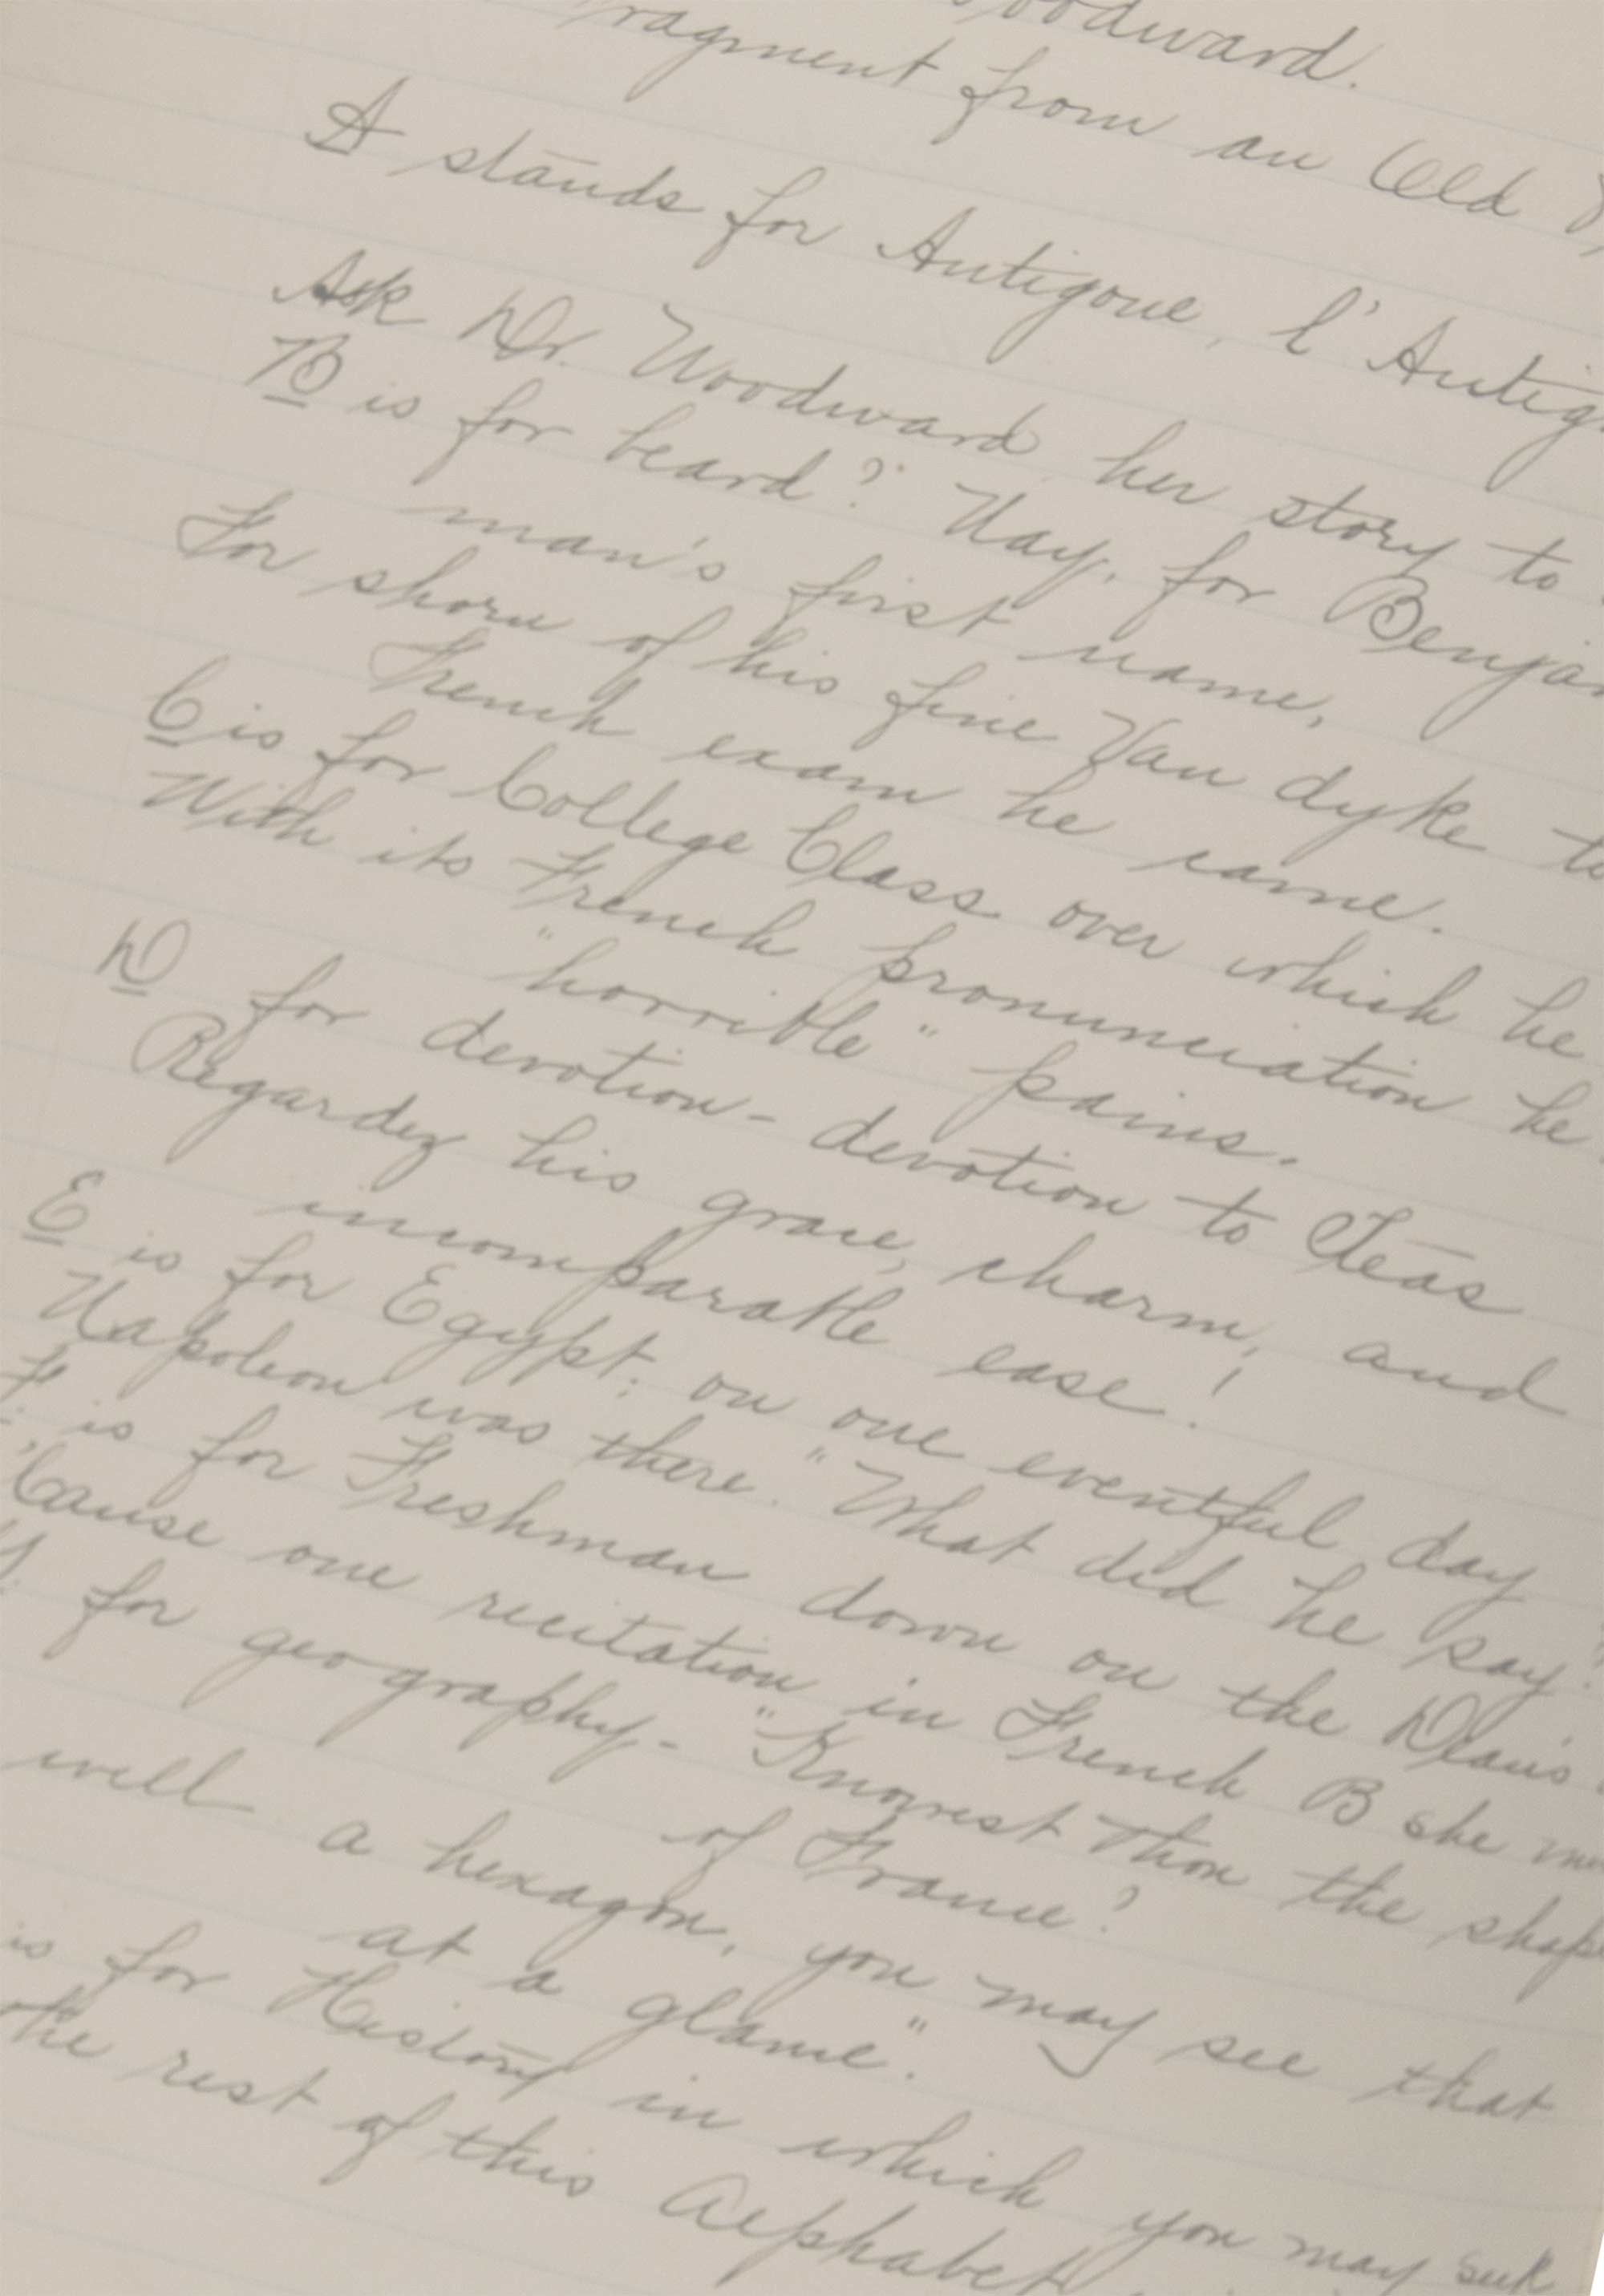 Woodward.
Fragment from an Old
A stands for Antigone, l'Antig
Ask Dr. Woodward her story to
B is for beard? Nay, for Benja
man's first name,
For shorn of his fine Van dyke to
French exam he came.
C is for College Class over which he
With its French pronunciation he
"horrible" pains.
D for devotion - devotion to Teas
Regardez his grace, charm, and
incomparable ease!
E is for Egypt: on one eventful day
Napoleon was there. "What did he say?
F is for Freshman down on the Dean's
'Cause one recitation in French B she
G for geography - "Knowest thou the shape
of France?
well a hexagon, you may see that
at a glance".
is for History in which you may seek
the rest of this Alphabet